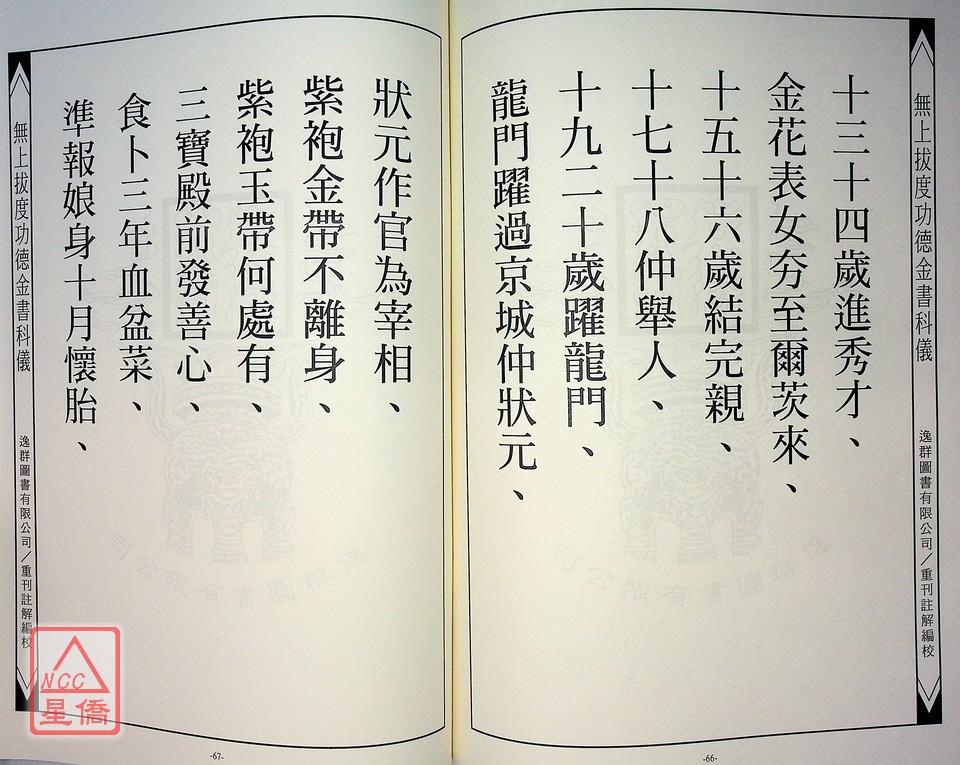 無上拔度功德金書科儀
逸群圖書有限公司／重刊註解編校
十三十四歲進秀才、
金花表女夯至爾茨來、
十五十六歲結完親、
十七十八仲舉人、
十九二十歲躍龍門、
龍門躍過京城仲狀元、
-66-
狀元作官為宰相、
紫袍金帶不離身、
紫袍玉帶何處有、
三寶殿前發善心、
食卜三年血盆菜、
準報娘身十月懷胎、
無上拔度功德金書科儀
逸群圖書有限公司／重刊註解編校
-67-
逸群圖書有限公司
逸群圖書有限公司
NCC
星僑